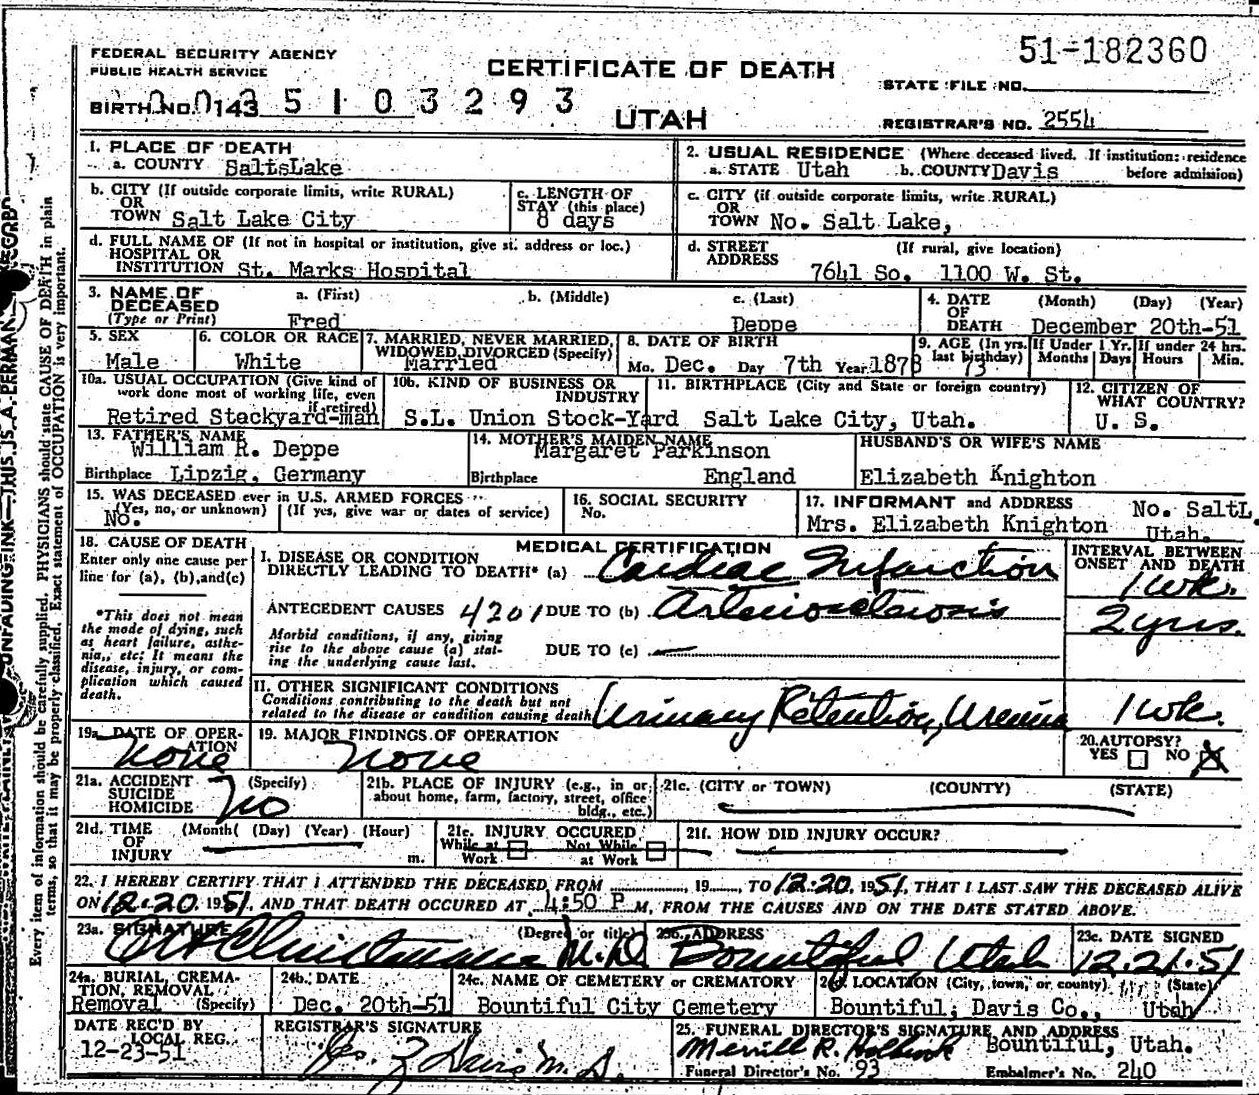 FEDERAL SECURITY AGENCY
PUBLIC HEALTH SERVICE
CERTIFICATE OF DEATH
51-182360
STATE FILE NO.
BIRTH NO. 0143 5 1 0 3 2 9 3
UTAH
REGISTRAR'S NO. 2554
1. PLACE OF DEATH
a. COUNTY SaltsLake
2. USUAL RESIDENCE (Where deceased lived. If institution: residence before admission)
a. STATE Utah b. COUNTY Davis
b. CITY (If outside corporate limits, write RURAL)
OR
TOWN Salt Lake City
c. LENGTH OF
STAY (this place)
8 days
c. CITY (if outside corporate limits, write RURAL)
OR
TOWN No. Salt Lake,
d. FULL NAME OF (If not in hospital or institution, give st. address or loc.)
HOSPITAL OR
INSTITUTION St. Marks Hospital
d. STREET (If rural, give location)
ADDRESS
7641 So. 1100 W. St.
3. NAME OF DECEASED
(Type or Print)
a. (First) b. (Middle) c. (Last)
Fred Deppe
4. DATE OF DEATH (Month) (Day) (Year)
December 20th-51
5. SEX
Male
6. COLOR OR RACE
White
7. MARRIED, NEVER MARRIED,
WIDOWED, DIVORCED (Specify)
Married
8. DATE OF BIRTH
Mo. Dec. Day 7th Year 1878
9. AGE (In yrs. last birthday)
73
If Under 1 Yr. If under 24 hrs.
Months Days Hours Min.
10a. USUAL OCCUPATION (Give kind of
work done most of working life, even
if retired)
Retired Stockyard-man
10b. KIND OF BUSINESS OR
INDUSTRY
S.L. Union Stock-Yard
11. BIRTHPLACE (City and State or foreign country)
Salt Lake City, Utah.
12. CITIZEN OF
WHAT COUNTRY?
U. S.
13. FATHER'S NAME
William R. Deppe
Birthplace Lipzig, Germany
14. MOTHER'S MAIDEN NAME
Margaret Parkinson
Birthplace England
HUSBAND'S OR WIFE'S NAME
Elizabeth Knighton
15. WAS DECEASED ever in U.S. ARMED FORCES
(Yes, no, or unknown) (If yes, give war or dates of service)
No.
16. SOCIAL SECURITY
No.
17. INFORMANT and ADDRESS No. SaltL.
Mrs. Elizabeth Knighton Utah.
18. CAUSE OF DEATH
Enter only one cause per
line for (a), (b), and (c)
*This does not mean
the mode of dying, such
as heart failure, asthe-
nia, etc; It means the
disease, injury, or com-
plication which caused
death.
MEDICAL CERTIFICATION
I. DISEASE OR CONDITION
DIRECTLY LEADING TO DEATH* (a) Cardiac Infarction
ANTECEDENT CAUSES 4201 DUE TO (b) Arteriosclerosis
Morbid conditions, if any, giving
rise to the above cause (a) stat-
ing the underlying cause last.
DUE TO (c)
INTERVAL BETWEEN
ONSET AND DEATH
1 wk.
2 yrs.
II. OTHER SIGNIFICANT CONDITIONS
Conditions contributing to the death but not
related to the disease or condition causing death
Urinary Retention, Uremia 1 wk.
19a. DATE OF OPER-
ATION
None
19. MAJOR FINDINGS OF OPERATION
None
20. AUTOPSY?
YES NO X
21a. ACCIDENT (Specify)
SUICIDE
HOMICIDE
No
21b. PLACE OF INJURY (e.g., in or
about home, farm, factory, street, office
bldg., etc.)
21c. (CITY or TOWN) (COUNTY) (STATE)
21d. TIME (Month( (Day) (Year) (Hour)
OF
INJURY m.
21e. INJURY OCCURED
While at Work Not While at Work
21f. HOW DID INJURY OCCUR?
22. I HEREBY CERTIFY THAT I ATTENDED THE DECEASED FROM , 19 , TO 12-20, 1951, THAT I LAST SAW THE DECEASED ALIVE
ON 12-20 1951, AND THAT DEATH OCCURED AT 4:50 P M, FROM THE CAUSES AND ON THE DATE STATED ABOVE.
23a. SIGNATURE (Degree or title)
M.D.
23b. ADDRESS
Bountiful, Utah
23c. DATE SIGNED
12-21-51
24a. BURIAL, CREMA-
TION, REMOVAL
Removal (Specify)
24b. DATE
Dec. 20th-51
24c. NAME OF CEMETERY or CREMATORY
Bountiful City Cemetery
LOCATION (City, town, or county) (State)
Bountiful, Davis Co., Utah
DATE REC'D BY
LOCAL REG.
12-23-51
REGISTRAR'S SIGNATURE
25. FUNERAL DIRECTOR'S SIGNATURE AND ADDRESS
Merrill R. Holbrook Bountiful, Utah.
Funeral Director's No. 93 Embalmer's No. 240
Every item of information should be carefully supplied. PHYSICIANS should state CAUSE OF DEATH in plain
terms, so that it may be properly classified. Exact statement of OCCUPATION is very important.